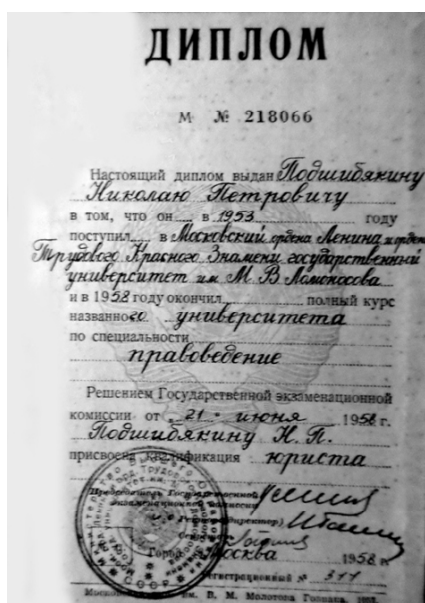 ДИПЛОМ
М № 218066
Настоящий диплом выдан Подшибякину
Николаю Петровичу
в том, что он в 1953 году
поступил в Московский ордена Ленина и ордена
Трудового Красного Знамени государственный
университет им М. В Ломоносова
и в 1958 году окончил полный курс
названного университета
по специальности
правоведение
Решением Государственной экзаменационной
комиссии от „21" июня 1958 г.
Подшибякину Н. П.
присвоена квалификация юриста
Председатель Государственной
экзаменационной комиссии
Ректор (директор)
Город Москва 1958 г.
Регистрационный № 377
СССР
Московская им. В. М. Молотова Гознака.